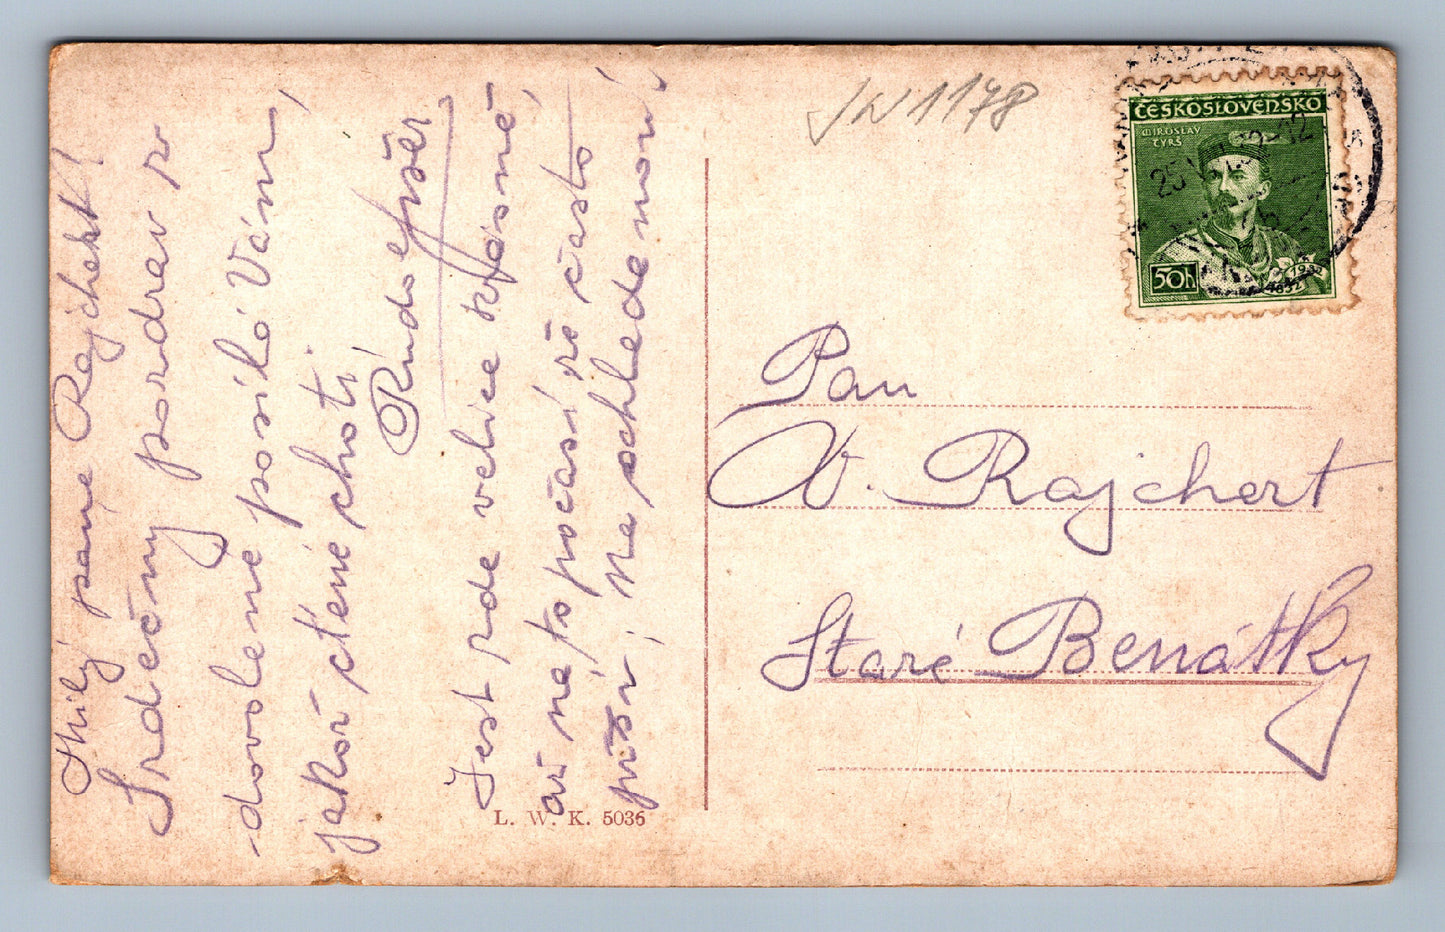 Milý pane Rajchert!
Srdečný pozdrav z
dovolené posílá Vám
jakož ctěné choti
Rudolf
Jest zde velice krásně,
až na to počasí že často
prší, na shledanou!
JW 1178
ČESKOSLOVENSKO
MIROSLAV
TYRŠ
50h
1932
1832
Pan
V. Rajchert
Staré Benátky
L. W. K. 5036